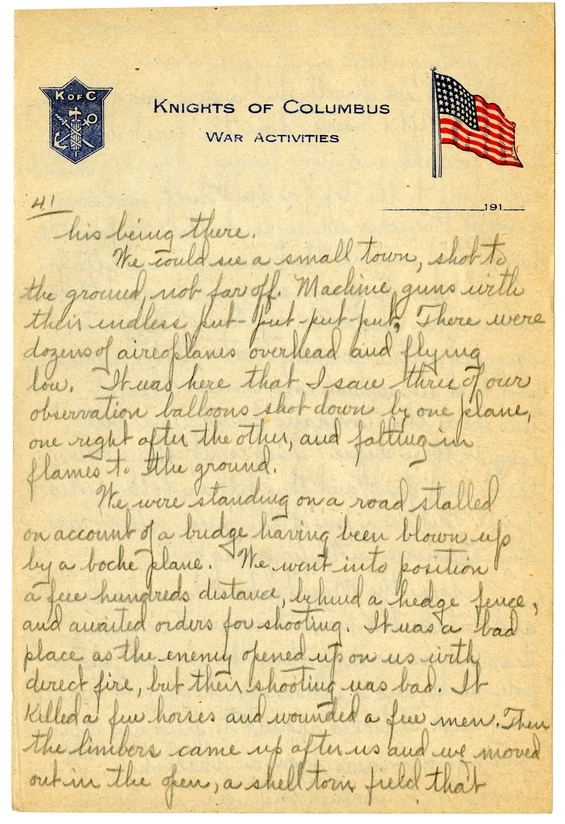 K OF C
KNIGHTS OF COLUMBUS
WAR ACTIVITIES
191
41
his being there.
We could see a small town, shot to
the ground, not far off. Machine guns with
their endless put-put put put. There were
dozens of aireoplanes overhead and flying
low. It was here that I saw three of our
observation balloons shot down by one plane,
one right after the other, and falling in
flames to the ground.
We were standing on a road stalled
on account of a bridge having been blown up
by a boche plane. We went into position
a few hundreds distance, behind a hedge fence,
and awaited orders for shooting. It was a bad
place as the enemy opened up on us with
direct fire, but their shooting was bad. It
killed a few horses and wounded a few men. Then
the limbers came up after us and we moved
out in the open, a shell torn field that